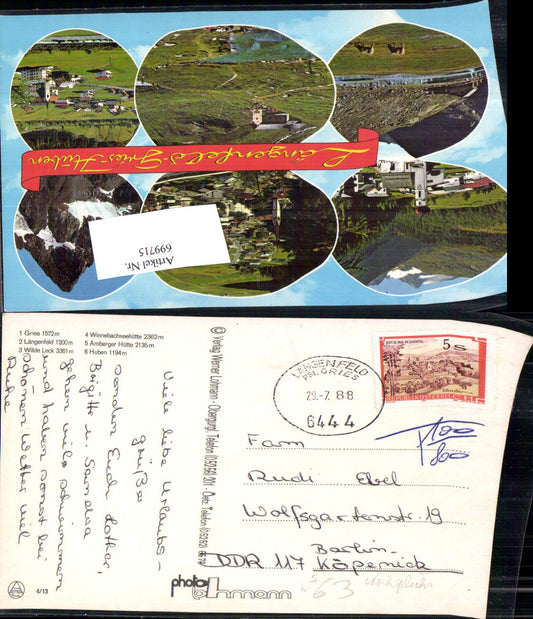 Längenfeld-Gries-Huben
Artikel Nr.
699715
1 Gries 1572m
2 Längenfeld 1200m
3 Wilde Leck 3361m
4 Winnebachseehütte 2362m
5 Amberger Hütte 2135m
6 Huben 1194m
Viele liebe Urlaubs-
grüße
senden Euch Lothar,
Brigitte u.
gehen viel schwimmen
und haben sonst bei
schönem Wetter viel
Ruhe
4/13
© Verlag Werner Lohmann - Obergurgl, Telefon
photo
Lohmann
LÄNGENFELD
PST. GRIES
29.-7.88
6444
5 S
REPUBLIK ÖSTERREICH
T 100
800
Fam
Rudi Ebel
Wolfsgartenstr. 19
Berlin
DDR 117 Köpenick
63